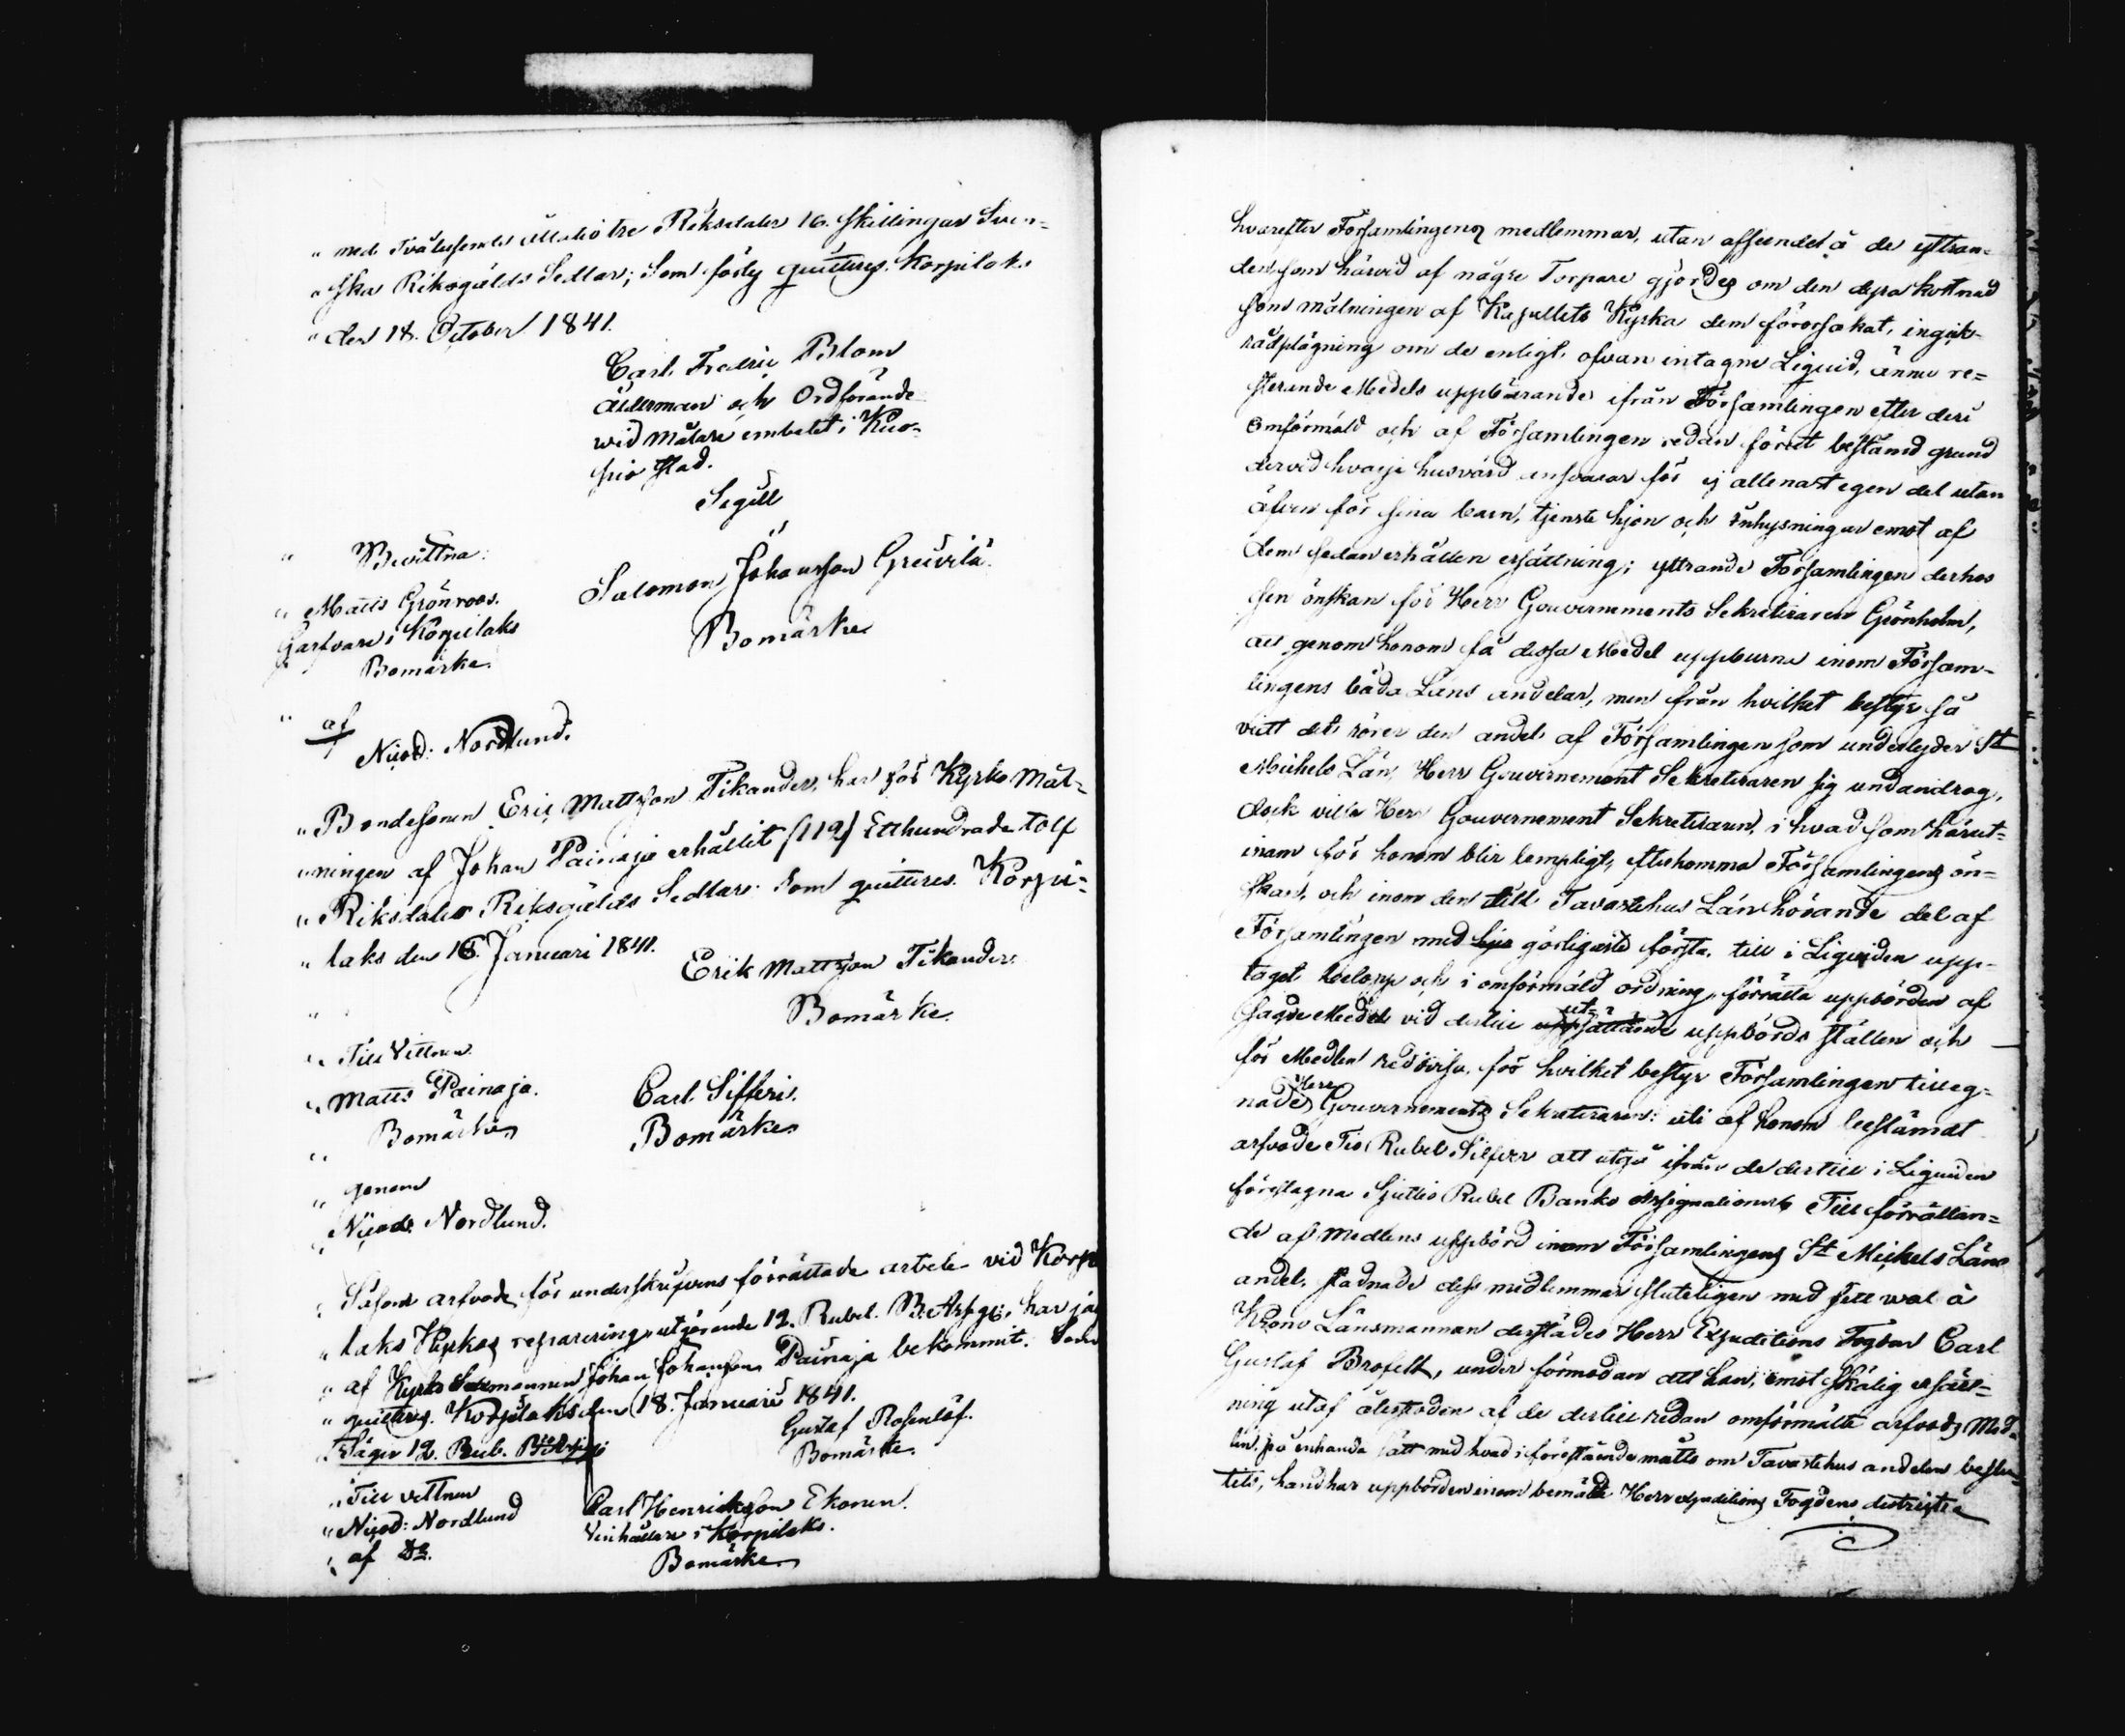 " med Tvåtusende åttatio tre Riksdaler 16. skillingar Sven-
" ska Riksgälds Sedlar; Som härig quitteres. Korpilaks
" den 18. October 1841.
Carl Fredric Blom
ålderman och Ordförande
wid målare embetet i Kuo-
pio stad.
Sigill
" Bevittna:
Salomon Johansson Greivilä
" Matts Grönroos.
Garfvare i Korpilaks
Bomärke
Bomärke.
" af
Nicod: Nordlund.
" Bondesonen Eric Mattsson Tikander, har för Kyrko Mål-
" ningen af Johan Painaja erhållit /112/ Etthundrade tolf
" Riksdaler Riksgälds Sedlar. som quitteres. Korpi-
" laks den 18. Januari 1841.
Erik Mattsson Tikander
Bomärke.
" Till Vittnen
" Matts Painaja. Carl Sifferi.
Bomärke Bomärke
" genom
Nicod: Nordlund.
" Såsom arfvode för underskrifvens förrättade arbete vid Korpi
" laks Kyrkas reparering utgörande 12. Rubel. B: Assge: har jag
" af Kyrko Sexmannen Johan Johansson Painaja bekommit. Som
" quitteras. Korpilaks den 18. Januari 1841.
Gustaf Rosenlöf.
" Säger 12. Rub. B: Assge:
Bomärke.
" Till vittnen
Carl Henricksson Ekonen.
" Nicod: Nordlund
Inhållare i Korpilaks.
" af Do.
Bomärke
hvarefter Församlingens medlemmar, utan afseende å de yttran-
den som härvid af någre Torpare gjordes om den dryga kostnad
som målningen af Kapellets Kyrka dem förorsakat, ingick
rådplägning om de enligt ofvan intagne Liquid, ännu re-
sterande Medels uppbärande ifrån Församlingen efter deri
omförmäld och af Församlingen redan förut bestämd grund
dervid hvarje husvärd ansvarar för ej allenast egen del utan
äfven för sina barn, tjenste hjon och inhysningar emot af
dem sedan erhållen ersättning; yttrande Församlingen derhos
sin önskan för Herr Gouvernements Sekreteraren Grönholm,
att genom honom få dessa Medel uppburne inom Försam-
lingens båda Läns andelar, men från hvilket bestyr så
vidt det rörer den andel af Församlingen som underlyder St
Michels Län, Herr Gouvernement Sekreteraren sig undandrog,
dock ville Herr Gouvernement Sekreteraren, i hvad som härut-
inom för honom blir lämpligt, efterkomma Församlingens ön-
skan, och inom den till Tavastehus Län hörande del af
Församlingen med görligaste första, till i Liquiden upp-
taget belopp och i omförmäld ordning, förrätta uppbörden af
sagde Medel vid dertill utsättande uppbörds ställen och
för Medlen redovisa, för hvilket bestyr Församlingen tilleg-
nade Herr Gouvernements Sekreteraren: uti af honom bestämdt
arfvode Tio Rubel Silfver att utgå ifrån de dertill i Liquiden
föreslagna Sjuttio Rubel Banko Assignationer. Till förrättan-
de af medlens uppbörd inom Församlingens St Michels Läns
andel, stadnade dess medlemmar sluteligen med sitt wal å
Krono Länsmannen derstädes Herr Expeditions Fogden Carl
Gustaf Brofelt, under förmodan att han, emot skälig ersätt-
ning utaf återstoden af de dertill redan omförmälte arfvods Med-
len, på enhanda sätt med hvad i förestående mått om Tavastehus andelen beslu-
tits, handhar uppbörden inom bemälte Herr expeditions Fogdens distrikte